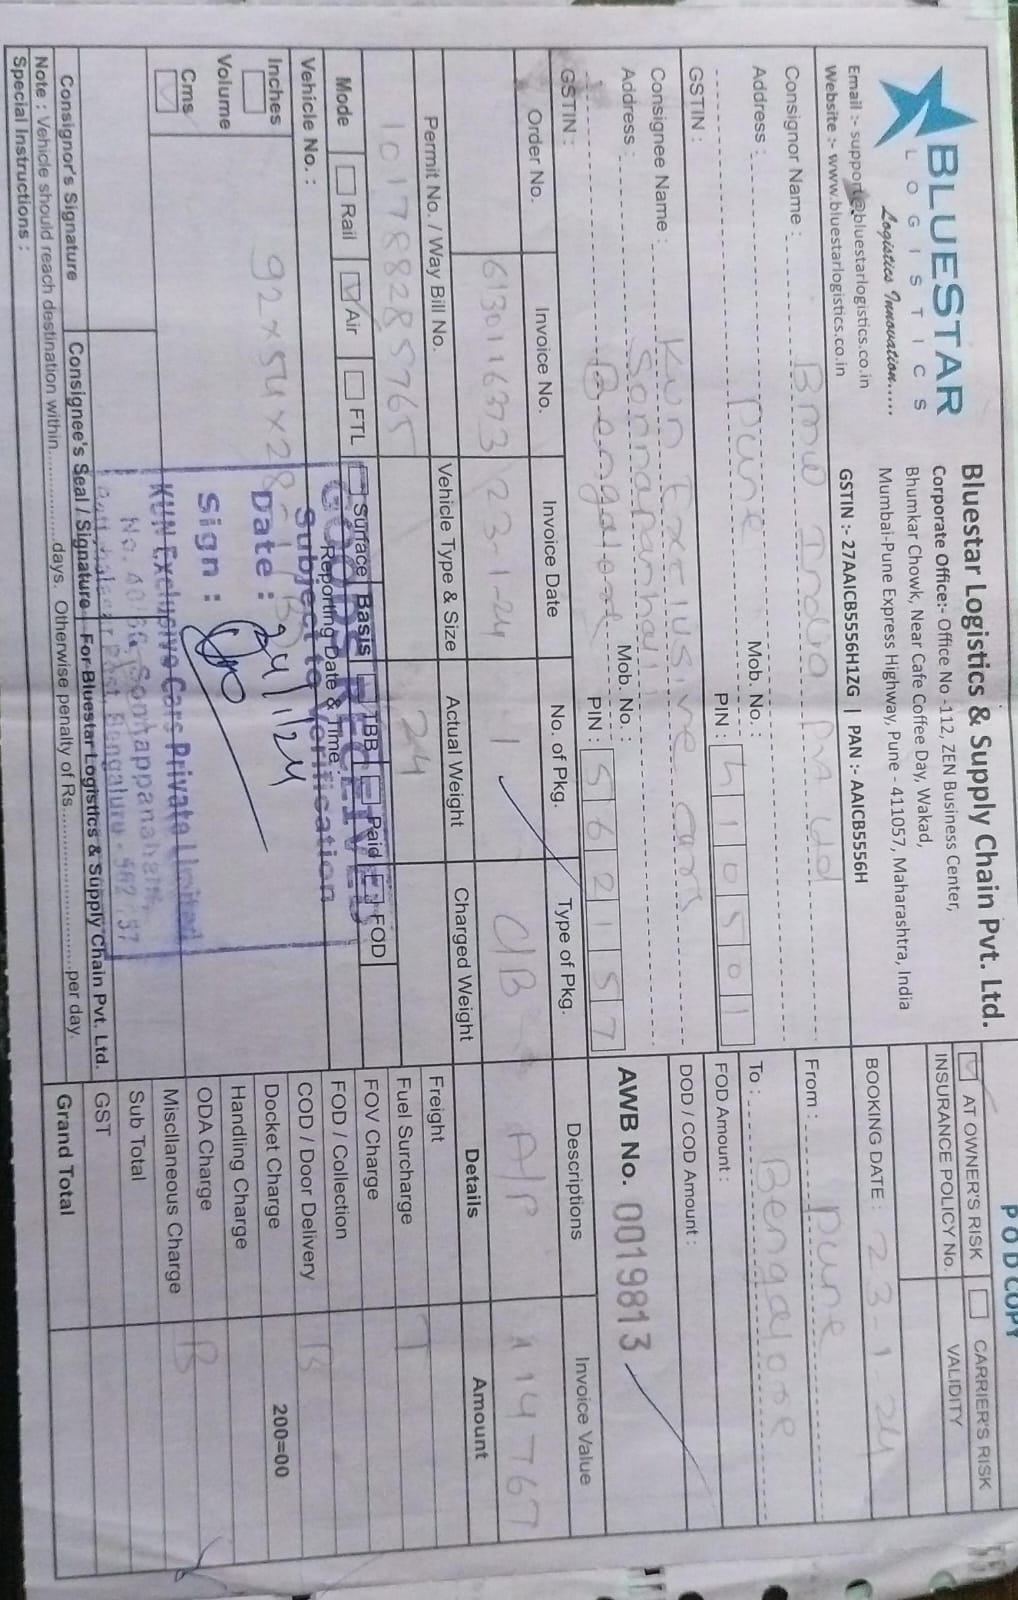 POD COPY
BLUESTAR
LOGISTICS
Logistics Innovation.....
Email :- support@bluestarlogistics.co.in
Website :- www.bluestarlogistics.co.in
Bluestar Logistics & Supply Chain Pvt. Ltd.
Corporate Office:- Office No -112, ZEN Business Center,
Bhumkar Chowk, Near Cafe Coffee Day, Wakad,
Mumbai-Pune Express Highway, Pune - 411057, Maharashtra, India
GSTIN :- 27AAICB5556H1ZG | PAN :- AAICB5556H
AT OWNER'S RISK CARRIER'S RISK
INSURANCE POLICY No. VALIDITY
BOOKING DATE : 23-1-24
From : Pune
To : Bengalore
FOD Amount :
DOD / COD Amount :
AWB No. 0019813
Consignor Name : BMW India Pvt Ltd
Address :
Pune Mob. No. :
PIN : 410501
GSTIN :
Consignee Name : Kun Exclusive Cars
Address : Sonnapanhalli
Mob. No. :
Bengalore PIN : 562157
GSTIN :
Order No. Invoice No. Invoice Date No. of Pkg. Type of Pkg. Descriptions Invoice Value
6130116373 23-1-24 1 C/B A/P 114767
Permit No. / Way Bill No. Vehicle Type & Size Actual Weight Charged Weight Details Amount
101788285765 24
Freight
Fuel Surcharge T
FOV Charge
FOD / Collection
COD / Door Delivery B
Docket Charge 200=00
Handling Charge
ODA Charge B
Miscllaneous Charge
Sub Total
GST
Grand Total
Mode Rail Air FTL Surface Basis TBB Paid FOD
Vehicle No. : Reporting Date & Time :
Inches
Volume
Cms
92x54x28
GOODS RECEIVED
Subject to Verification
Date : 24/1/24
Sign :
KUN Exclusive Cars Private Limited
No. 40/ Sonnappanahalli,
Post, Bengaluru - 562 157
Consignor's Signature Consignee's Seal / Signature For Bluestar Logistics & Supply Chain Pvt. Ltd.
Note : Vehicle should reach destination within..................days. Otherwise penalty of Rs..................................per day.
Special Instructions :